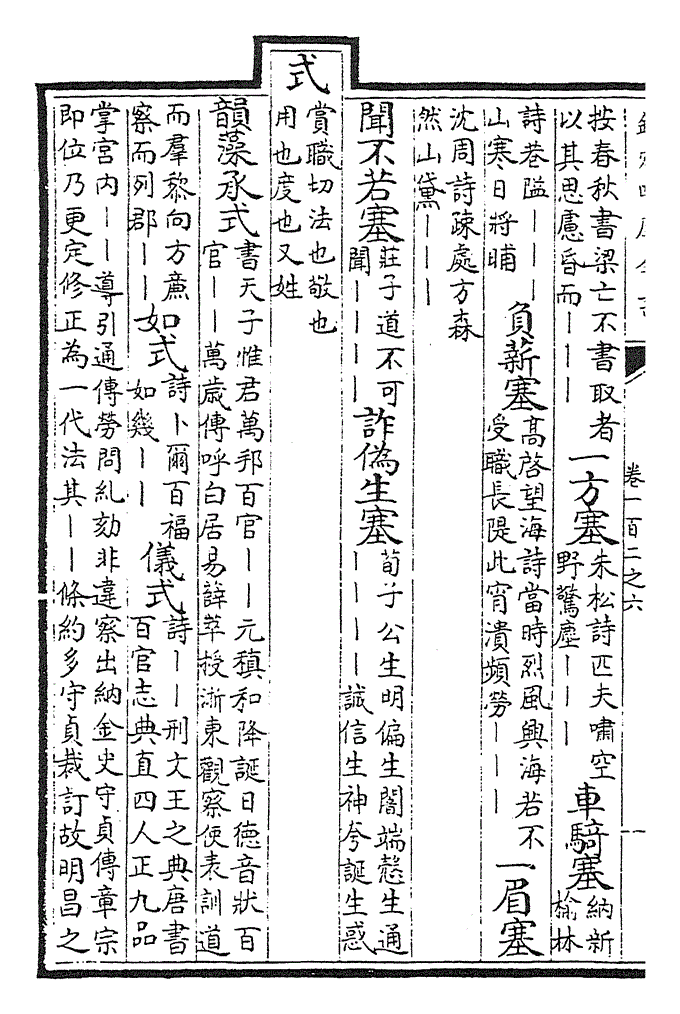 卷一百二之六
按春秋書梁亡不書取者
以其思慮昏而｜｜｜
一方塞
朱松詩匹夫嘯空
野驚塵｜｜｜
車騎塞
納新
榆林
詩巷隘｜｜｜
山寒日將晡
負薪塞
高啓望海詩當時烈風興海若不
受職長隄此宵潰頻勞｜｜｜
一眉塞
沈周詩疎處方森
然山黛｜｜｜
聞不若塞
莊子道不可
聞｜｜｜｜
詐偽生塞
荀子公生明偏生闇端慤生通
｜｜｜｜誠信生神夸誕生惑
式
賞職切法也敬也
用也度也又姓
韻藻承式
書天子惟君萬邦百官｜｜元稹和降誕日德音狀百
官｜｜萬歲傳呼白居易薛苹授浙東觀察使表訓道
而羣黎向方廉
察而列郡｜｜
如式
詩卜爾百福
如幾｜｜
儀式
詩｜｜刑文王之典唐書
百官志典直四人正九品
掌宮内｜｜導引通傳勞問糺劾非違察出納金史守貞傳章宗
即位乃更定修正為一代法其｜｜條約多守貞裁訂故明昌之